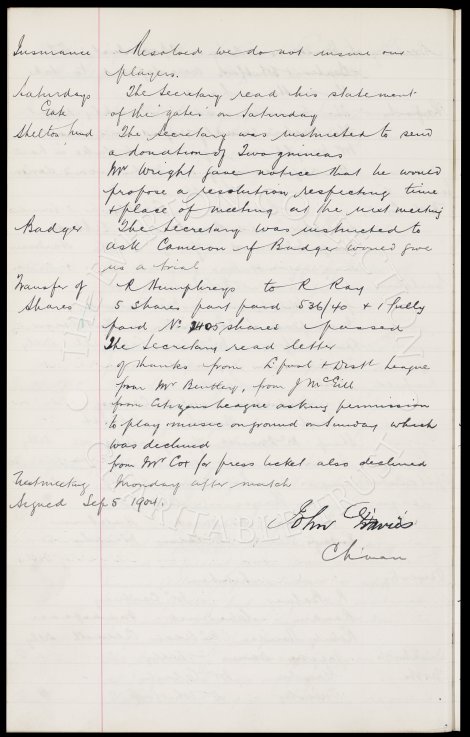 Insurance Resolved we do not insure our
players.
Saturdays The Secretary read his statement
Gate of the 'gates' on Saturday
Shelton fund The Secretary was instructed to send
a donation of Two guineas
Mr Wright gave notice that he would
propose a resolution respecting time
& place of meeting at the next meeting
Badger The Secretary was instructed to
ask Cameron if Badger would give
us a trial
Transfer of R Humphreys to R Ray
Shares 5 shares part paid 536/40 & 1 fully
paid No 2405 shares passed
The Secretary read letter
of thanks from L'pool & Distt League
from Mr Bentley, from J McGill
from Citizens League asking permission
to play music on ground on Sunday which
was declined
from Mr Cox for press ticket also declined
Next meeting Monday after match
Signed Sep 5 1904.
John Davies
Chman